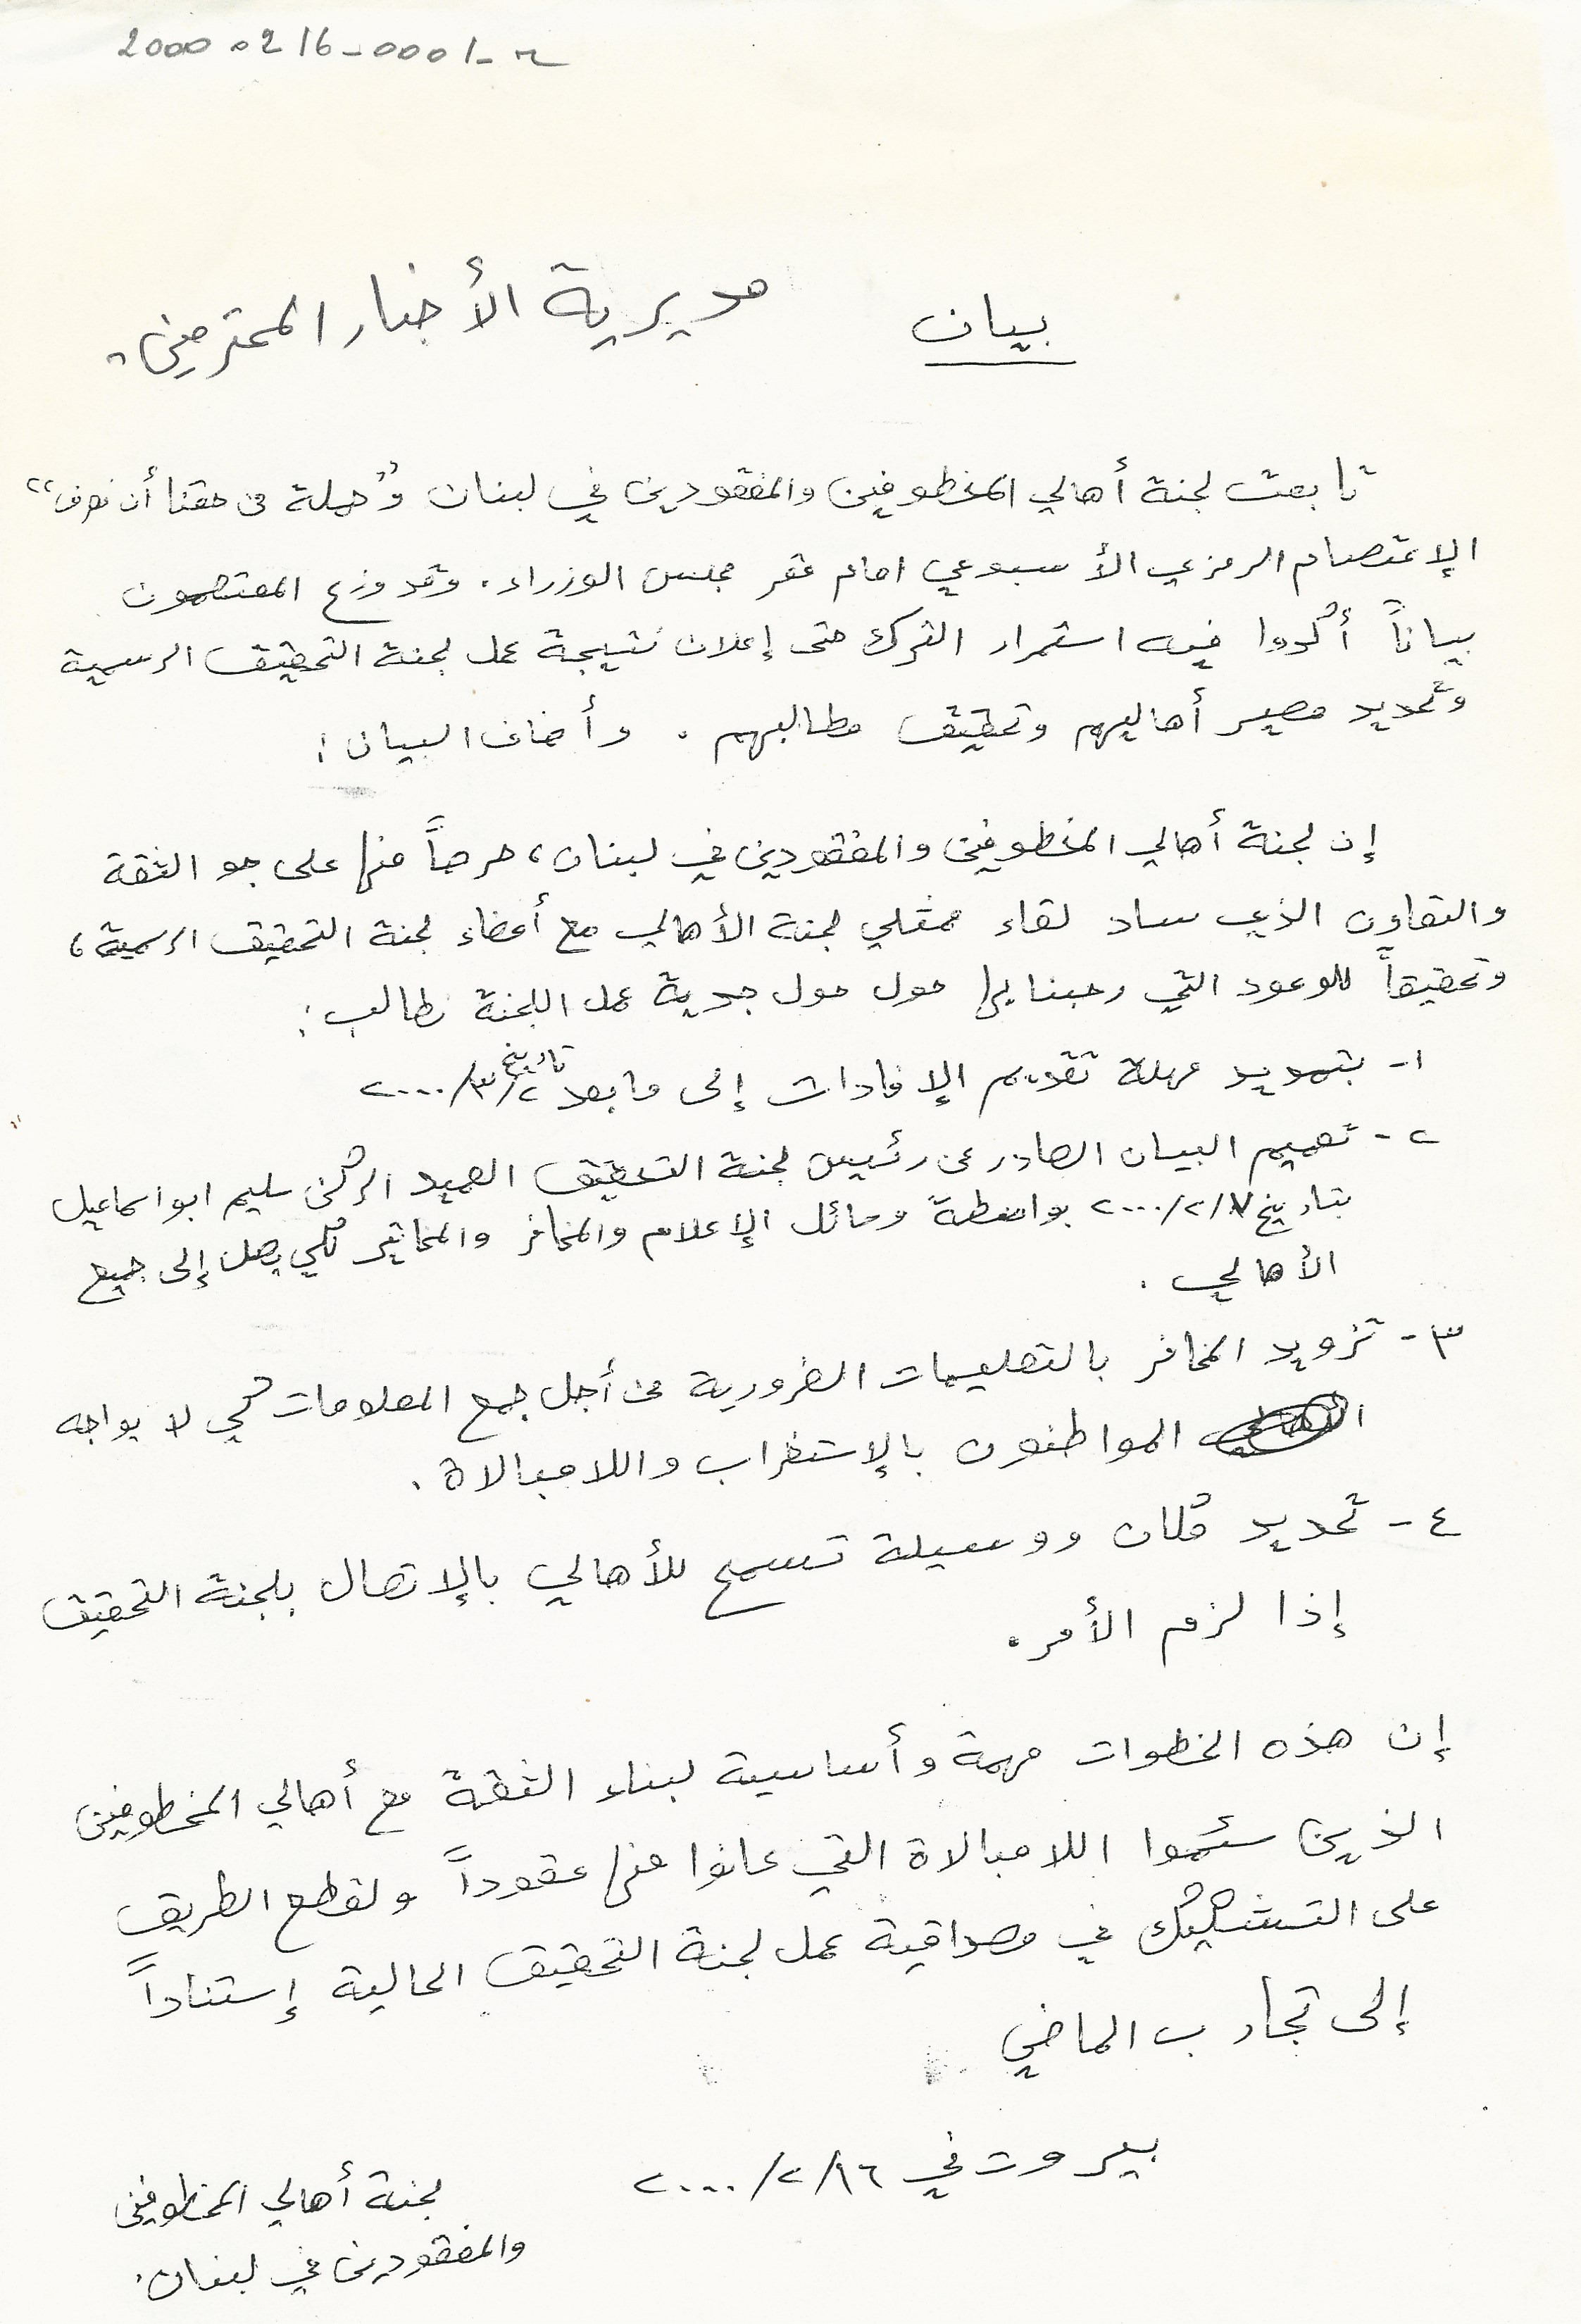 20000216-0001-
بيان
مديرية الأخبار المحترمين.
تابعت لجنة أهالي المخطوفين والمفقودين في لبنان و"حملة من حقنا أن نعرف"
الإعتصام الرمزي الأسبوعي امام مقر مجلس الوزراء. وقد وزع المعتصمون
بياناً أكدوا فيه استمرار التحرك حتى إعلان نتيجة عمل لجنة التحقيق الرسمية
وتحديد مصير أهاليهم وتحقيق مطالبهم. وأضاف البيان:
إن لجنة أهالي المخطوفين والمفقودين في لبنان، حرصاً منها على جو الثقة
والتعاون الذي ساد لقاء ممثلي لجنة الأهالي مع أعضاء لجنة التحقيق الرسمية،
وتحقيقاً للوعود التي رحبنا بها حول حول جدية عمل اللجنة نطالب:
١- بتمديد مهلة تقديم الإفادات إلى ما بعد تاريخ ٢/٣/٢٠٠٠
٢- تعميم البيان الصادر عن رئيس لجنة التحقيق العميد الركن سليم ابو اسماعيل
بتاريخ ٧/٢/٢٠٠٠ بواسطة وسائل الإعلام والمخافر والمخاتير لكي يصل إلى جميع
الأهالي.
٣- تزويد المخافر بالتعليمات الضرورية من أجل جمع المعلومات كي لا يواجه
المواطنون بالإستغراب واللامبالاة.
٤- تحديد مكان ووسيلة تسمح للأهالي بالإتصال بلجنة التحقيق
إذا لزم الأمر.
إن هذه الخطوات مهمة وأساسية لبناء الثقة مع أهالي المخطوفين
الذين سئموا اللامبالاة التي عانوا منها عقوداً ولقطع الطريق
على التشكيك في مصداقية عمل لجنة التحقيق الحالية إستناداً
إلى تجارب الماضي
بيروت في ١٦/٢/٢٠٠٠
لجنة أهالي المخطوفين
والمفقودين في لبنان.